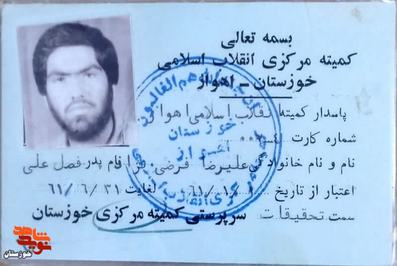 بسمه تعالی
کمیته مرکزی انقلاب اسلامی
خوزستان - اهواز
پاسدار کمیته انقلاب اسلامی اهواز
شماره کارت
نام و نام خانوادگی علیرضا فرضی نام پدر فضل علی
اعتبار از تاریخ لغایت ۶۱/۶/۳۱
سمت تحقیقات سرپرستی کمیته مرکزی خوزستان
خوزستان
اهواز
نوید شاهد
خوزستان